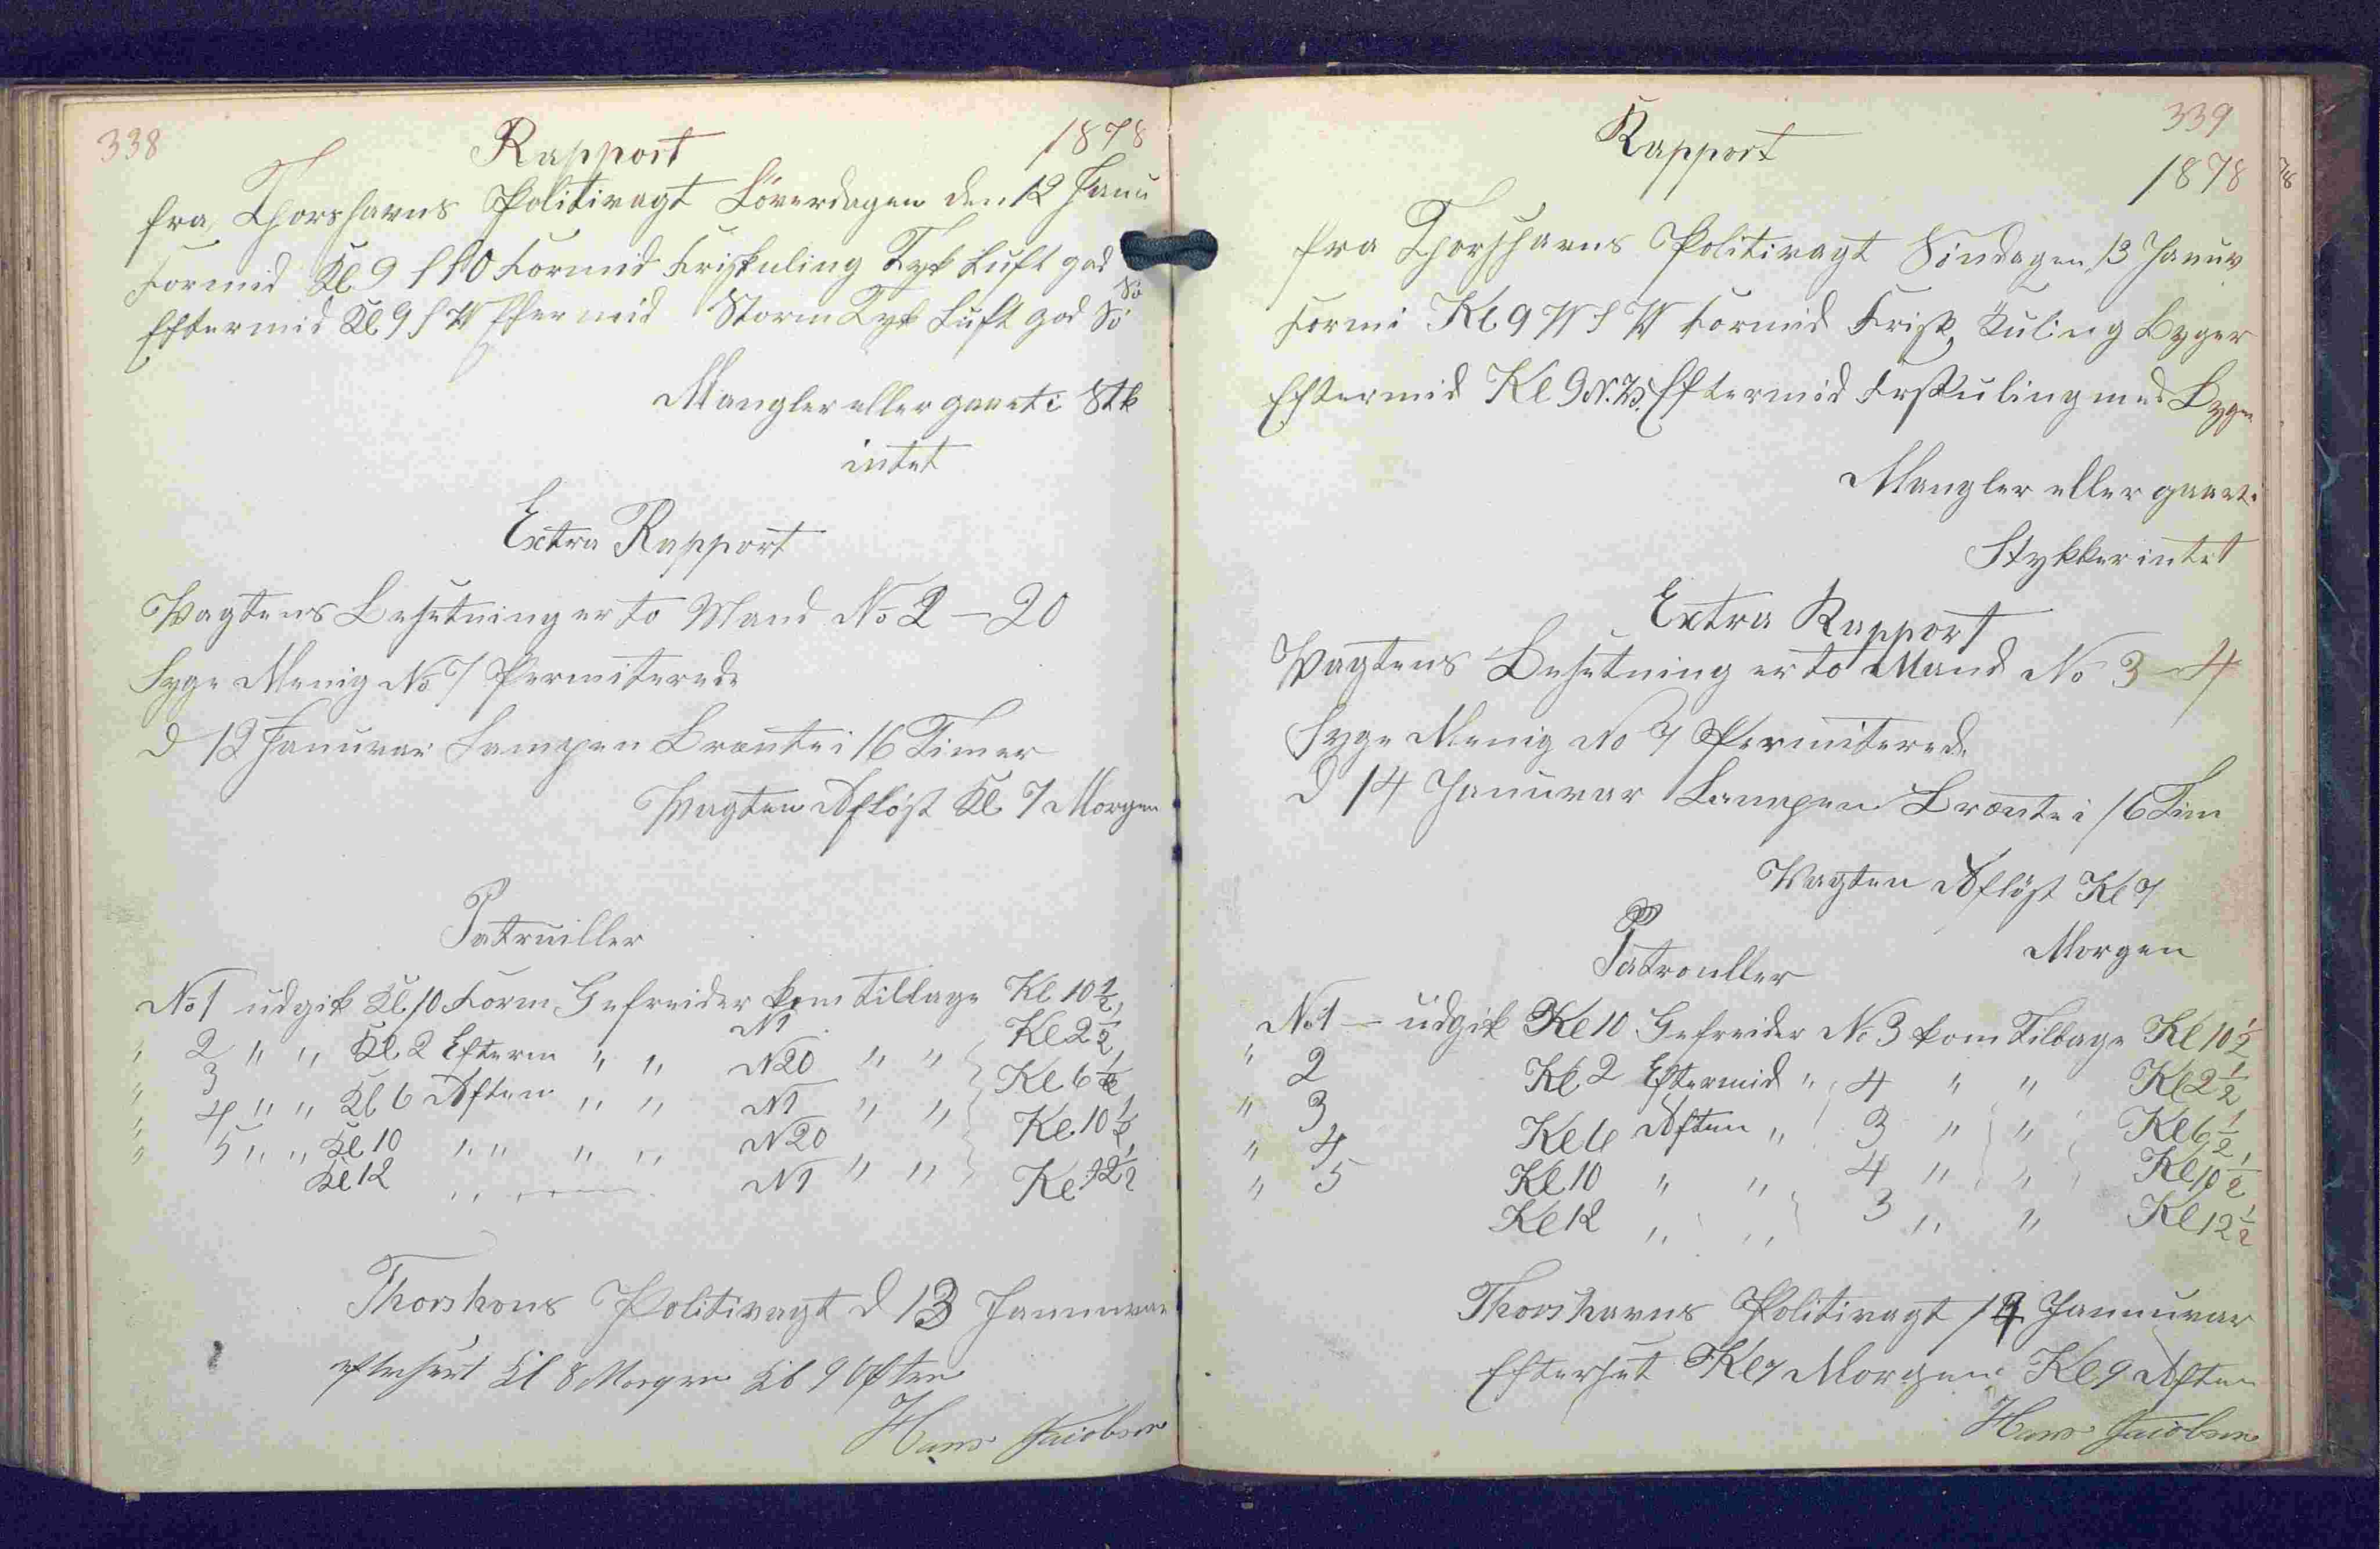 338
Rapport
1878
fra Thorshavns Politivagt Löverdagen den 12 Janu
Formid Kl 9 SSO Formid Friskuling Tyk Luft god Sö
Eftermid Kl 9 S W Efermid Storm Tyk Luft god Sö
Mangler eller gaaet i Stk
intet
Extra Rapport
Vagtens Besetning er to Mand No 2 — 20
Syge Menig No 7 Permiterede
d 12 Januvar Lampen Brænte i 16 Timer
Vagten Aflöst Kl 7 Morgen
Patruiller
No 1 udgik Kl 10 Form Gefreider kom tilbage Kl 10 1/2
" 2 " " Kl 2 Efterm " " N1 Kl 2 1/2
" 3 Kl 6 Aften " " N20 " " Kl 6 1/2
" 4 " " Kl 10 " " " " N1 " " Kl 10 1/2
" 5 " " Kl 12 N20 Kl 12 1/2
N1 " "
Thorshavns Politivagt d 13 Januvar
efterseet Kl 8 Morgen Kl 9 Aften
Hans Jacobsen
339
Rapport
1878
fra Thorshavns Politivagt Söndagen 13 Januv
Formi Kl 9 W S W Formid Frisk Kuling Byger
Eftermid Kl 9 N.W. Eftermid Frskuling med Byger
Mangler eller gaaet i
Stykker intet
Extra Rapport
Vagtens Besetning er to Mand No 3 — 4
Syge Menig No 7 Permiterede
d 14 Januvar Lampen Brænte i 16 Tim
Vagten Aflöst Kl 7
Morgen
Patrouller
No 1 — udgik Kl 10 Gefreider No 3 kom Tilbage Kl 10 1/2
" 2 Kl 2 Eftermid " 4 " " Kl 2 1/2
" 3 Kl 6 Aften " 3 " " Kl 6 1/2
" 4 Kl 10 " " 4 " " Kl 10 1/2
" 5 Kl 12 " " 3 " " Kl 12 1/2
Thorshavns Politivagt 14 Januvar
Efterset Kl 7 Morgen Kl 9 Aften
Hans Jacobsen